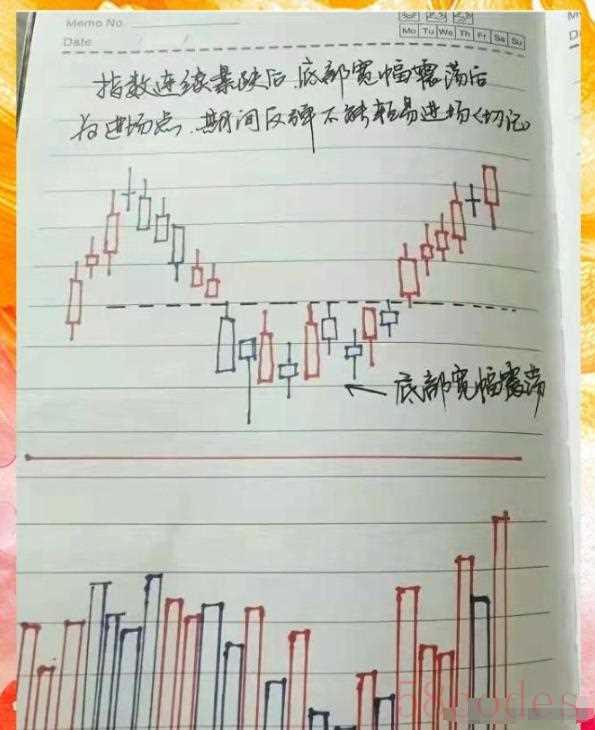 Memo No.
Date / /
Mo Tu We Th Fr Sa Su
指数连续暴跌后,底部宽幅震荡后
为进场点,期间反弹不能轻易进场<切记>
底部宽幅震荡
58codes